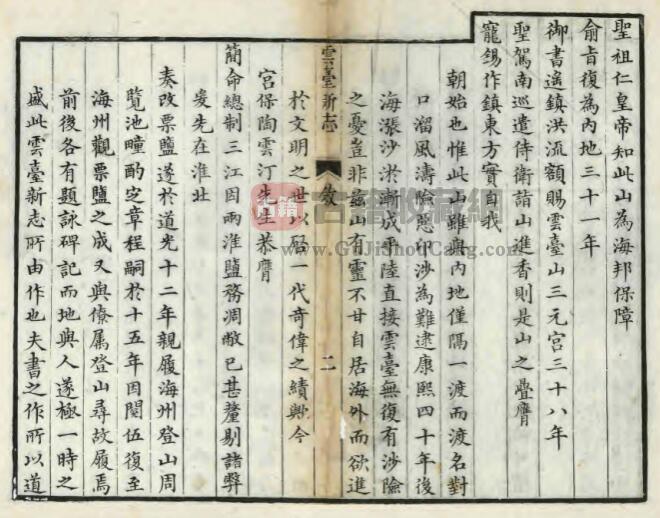 聖祖仁皇帝知此山為海邦保障
俞旨復為內地三十一年
御書遙鎮洪流額賜雲臺山三元宮三十八年
聖駕南巡遣侍衛詣山進香則是山之疊膺
寵錫作鎮東方實自我
朝始也惟此山雖與內地僅隔一渡而渡名對
口溜風濤險惡卬沙為難逮康熙四十年後
海漲沙淤漸成平陸直接雲臺無復有涉險
之憂豈非茲山有靈不甘自居海外而欲進
於文明之世以啟一代奇偉之績與今
雲臺新志
敘
二
宮保陶雲汀先生恭膺
簡命總制三江因兩淮鹽務凋敝已甚釐剔諸弊
爰先在淮北
奏改票鹽遂於道光十二年親履海州登山周
覽池疃酌定章程嗣於十五年因閱伍復至
海州觀票鹽之成又與僚属登山尋故履焉
前後各有題詠碑記而地與人遂極一時之
盛此雲臺新志所由作也夫書之作所以道
古籍
古籍收藏網
www.GuJiShouCang.com